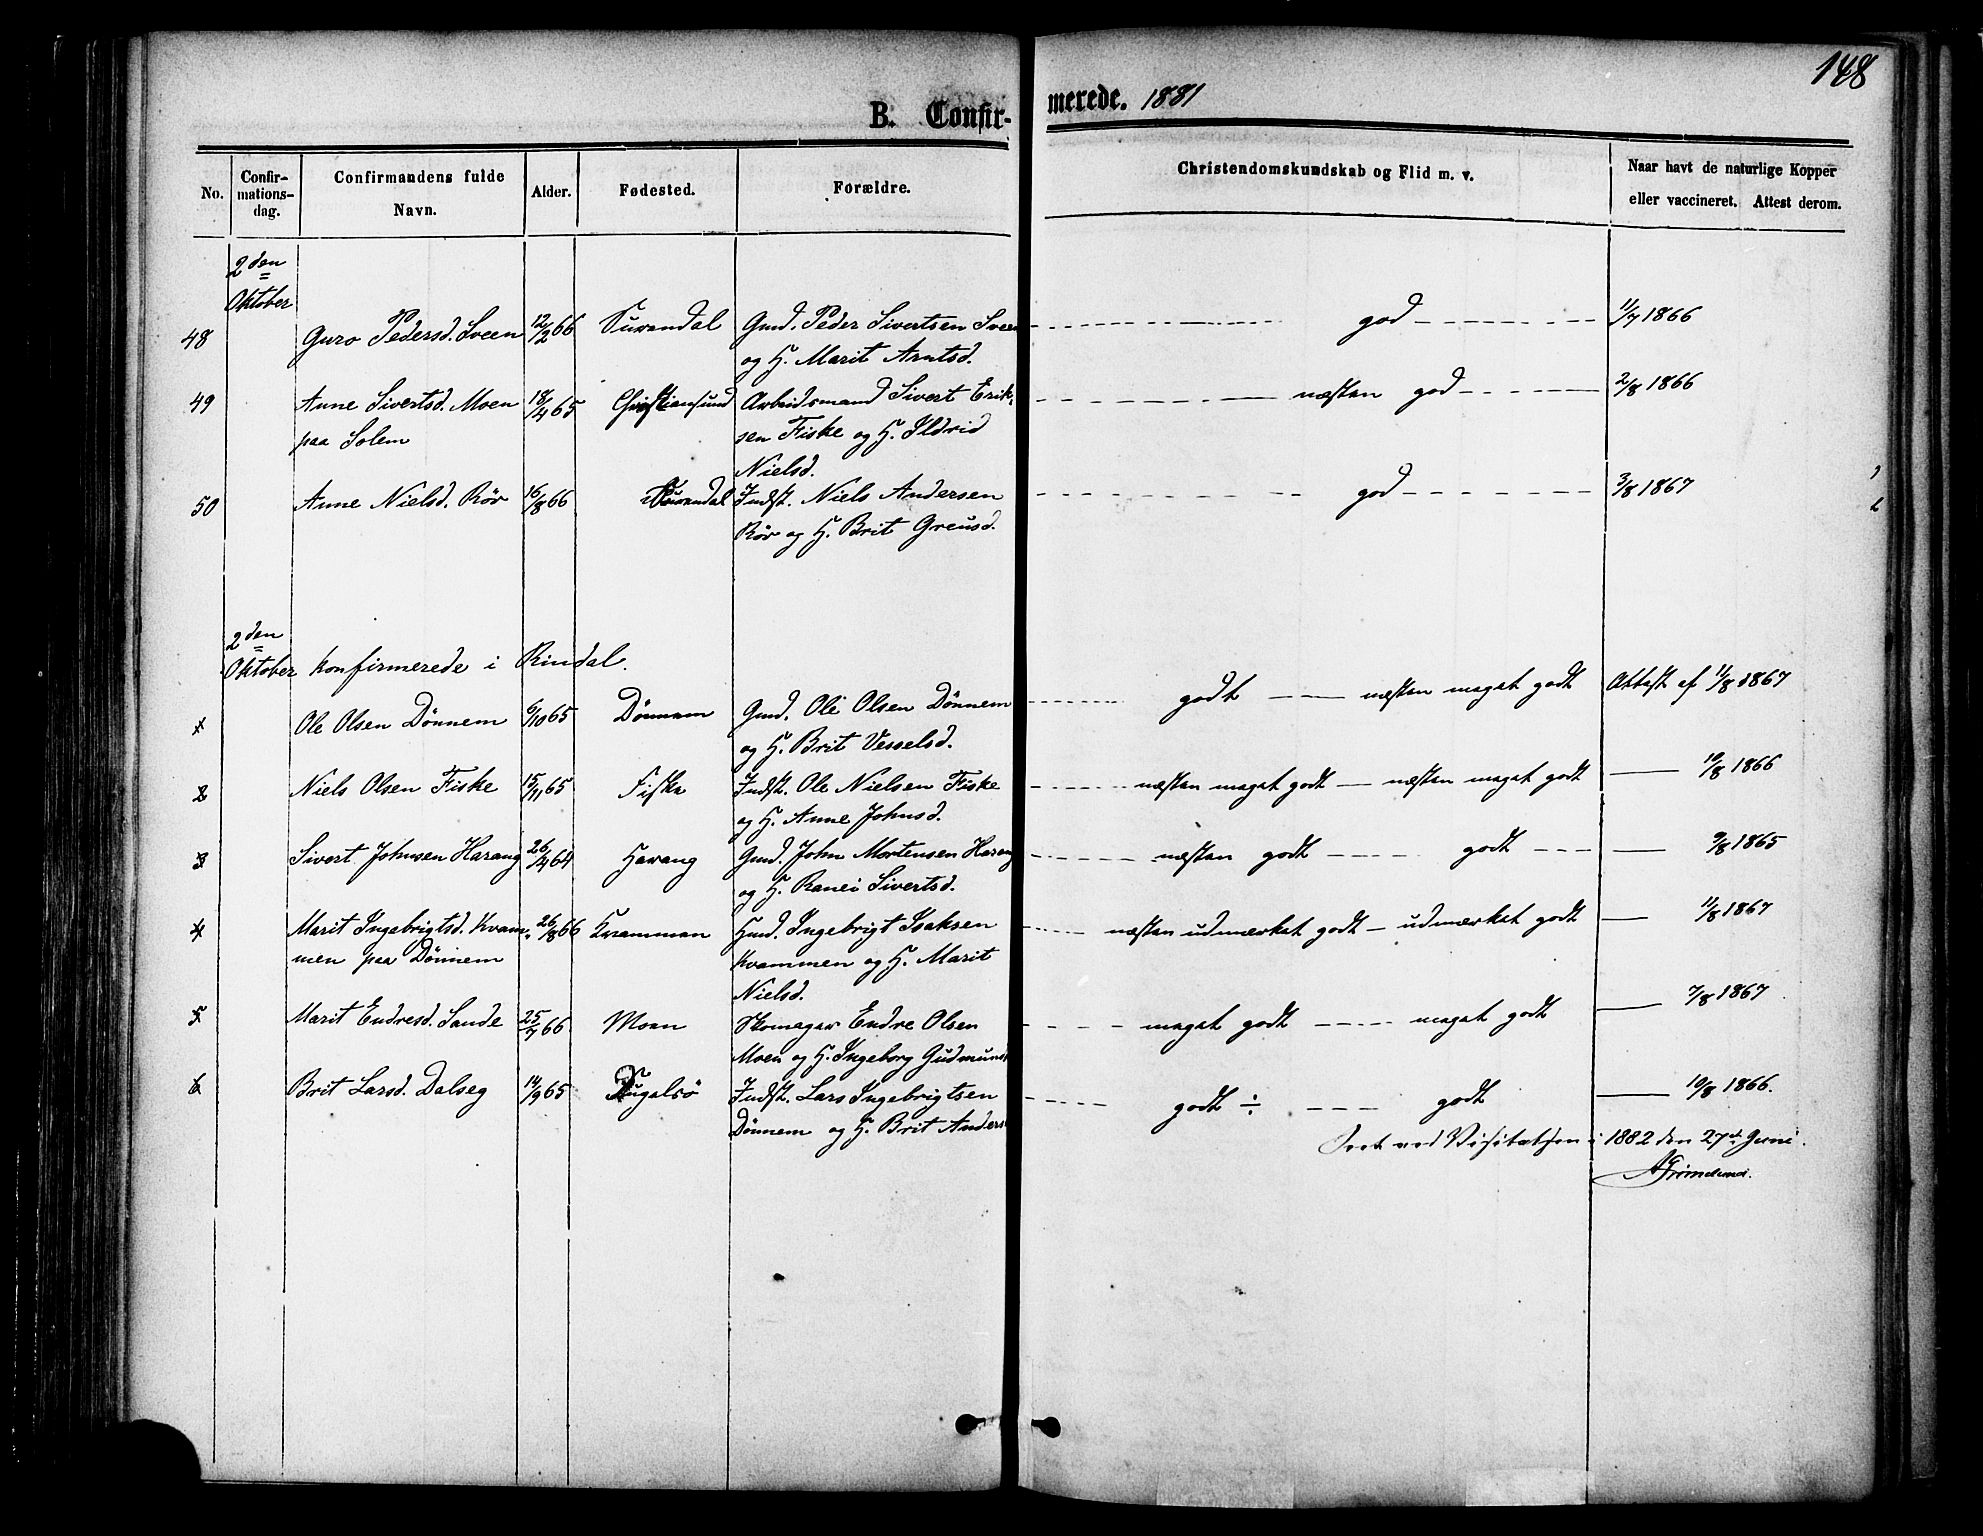 148
B. Confir-
merede. 1881
No.
Confir-
mations-
dag.
Confirmandens fulde
Navn.
Alder.
Fødested.
Forældre.
Christendomskundskab og Flid m. v.
Naar havt de naturlige Kopper
eller vaccineret. Attest derom.
2den
Oktober
48 Guro Pedersd. Sveen 12/2 66 Surendal Gmd. Peder Sivertsen Sveen god 11/7 1866
og H. Marit Arntsd.
49 Anne Sivertsd. Moen 18/4 65 Christiansund Arbeidsmand Sivert Erik- næsten god 2/8 1866
paa Solem sen Fiske og H. Ildrid
Nielsd.
50 Anne Nielsd. Rör 16/8 66 Surendal Indst. Niels Andersen god 3/8 1867
Rör og H. Brit Greusd.
2den
Oktober konfirmerede i Rindal.
1 Ole Olsen Dönnem 6/10 65 Dönnem Gmd. Ole Olsen Dönnem godt næsten meget godt Attest af 11/8 1867
og H. Brit Vesselsd.
2 Niels Olsen Fiske 15/11 65 Fiske Indst. Ole Nielsen Fiske næsten meget godt næsten meget godt 10/8 1866
og H. Anne Johnsd.
3 Sivert Johnsen Harang 26/4 64 Harang Gmd. John Mortensen Harang næsten godt godt 9/8 1865
og H. Ranei Sivertsd.
4 Marit Ingebrigtsd. Kvam- 26/8 66 Kvammen Hmd. Ingebrigt Isaksen næsten udmærket godt udmærket godt 11/8 1867
men paa Dönnem Kvammen og H. Marit
Nielsd.
5 Marit Endresd. Sande 25/7 66 Moen Skomager Endre Olsen meget godt meget godt 7/8 1867
Moen og H. Ingeborg Gudmunds
6 Brit Larsd. Dalseg 14/9 65 Indst. Lars Ingebrigtsen godt ÷ godt 10/8 1866.
Dönnem og H. Brit Anders
ved Visitatsen i 1882 den 27de Juni.